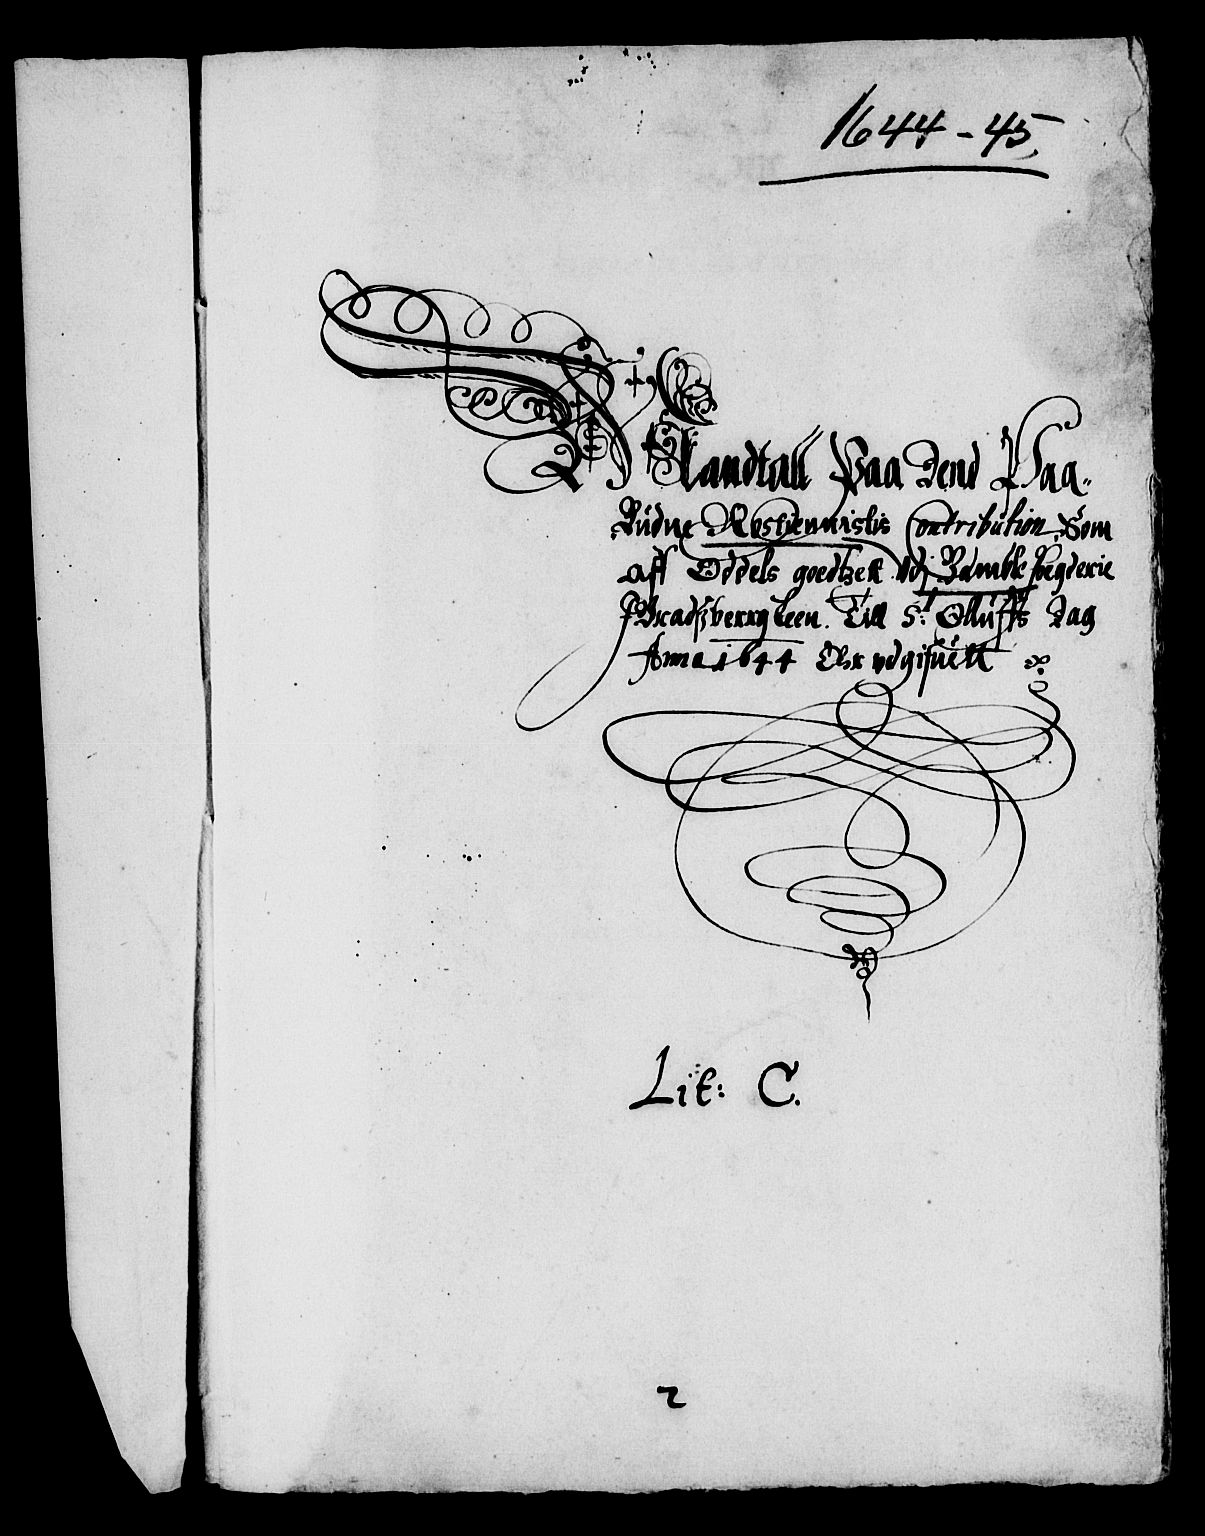 1644-45.
Mandtall Paa Dend Paa-
Budne Rostiennistis Contribution, Som
aff Oddels goedtzett Vdj Bamble foegderie
J Bradsberrig Leen. Till S: Olluffs Dag
Anno 1644 Ehr vdgifuett
Lit: C.
2